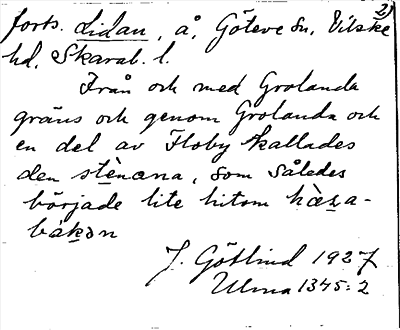 2)
forts. Lidan, å, Göteve sn, Vilske
hd, Skarab. l.
Från och med Grolanda
gräns och genom Grolanda och
en del av Floby kallades
den stènana, som således
började lite hitom hàza-
bákən
J. Götlind 1927
Ulma 1345:2